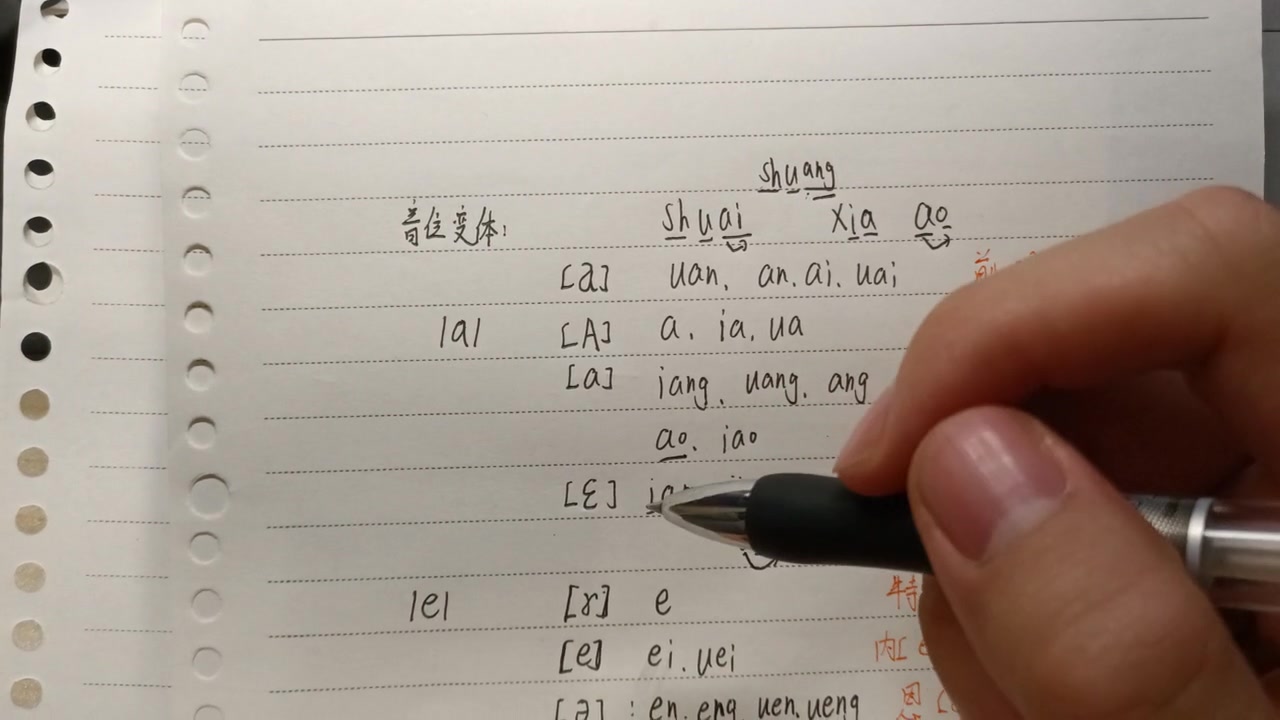 shuang
音位变体： shuai xia ao
[a] uan, an. ai. uai 前
|a| [A] a. ia. ua
[ɑ] iang, uang, ang
ao. iao
[ɛ]
|e| [ɤ] e 特
[e] ei. uei 内[
[ə] : en. eng uen. ueng 因